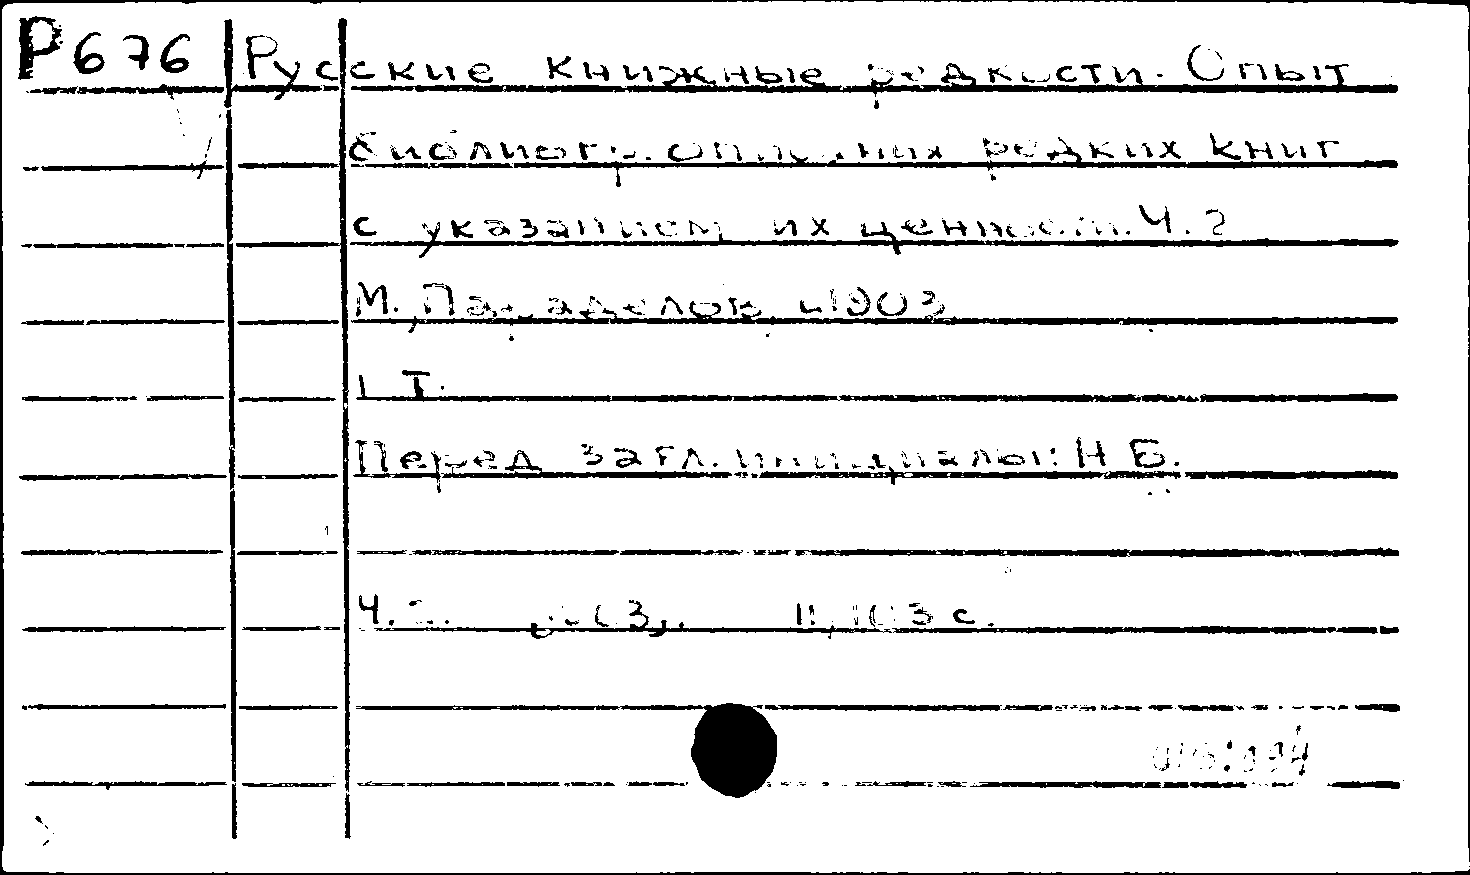 Р676 Русские книжные редкости. Опыт
библиогр. описания редких книг
с указанием их ценности. Ч. 2
М., Параделов, 1903
1 т.
Перед загл. инициалы: Н Б.
Ч. 2. 1903. II, 103 с.